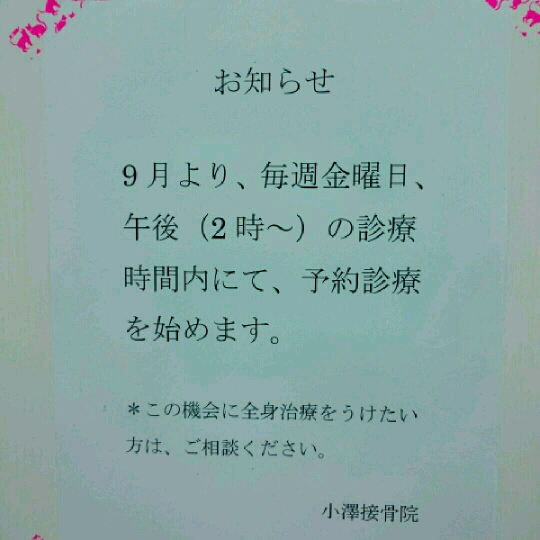 お知らせ
9月より、毎週金曜日、
午後（2時～）の診療
時間内にて、予約診療
を始めます。
＊この機会に全身治療をうけたい
方は、ご相談ください。
小澤接骨院